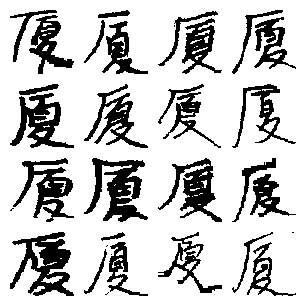 厦厦厦厦
厦厦厦厦
厦厦厦厦
厦厦厦厦